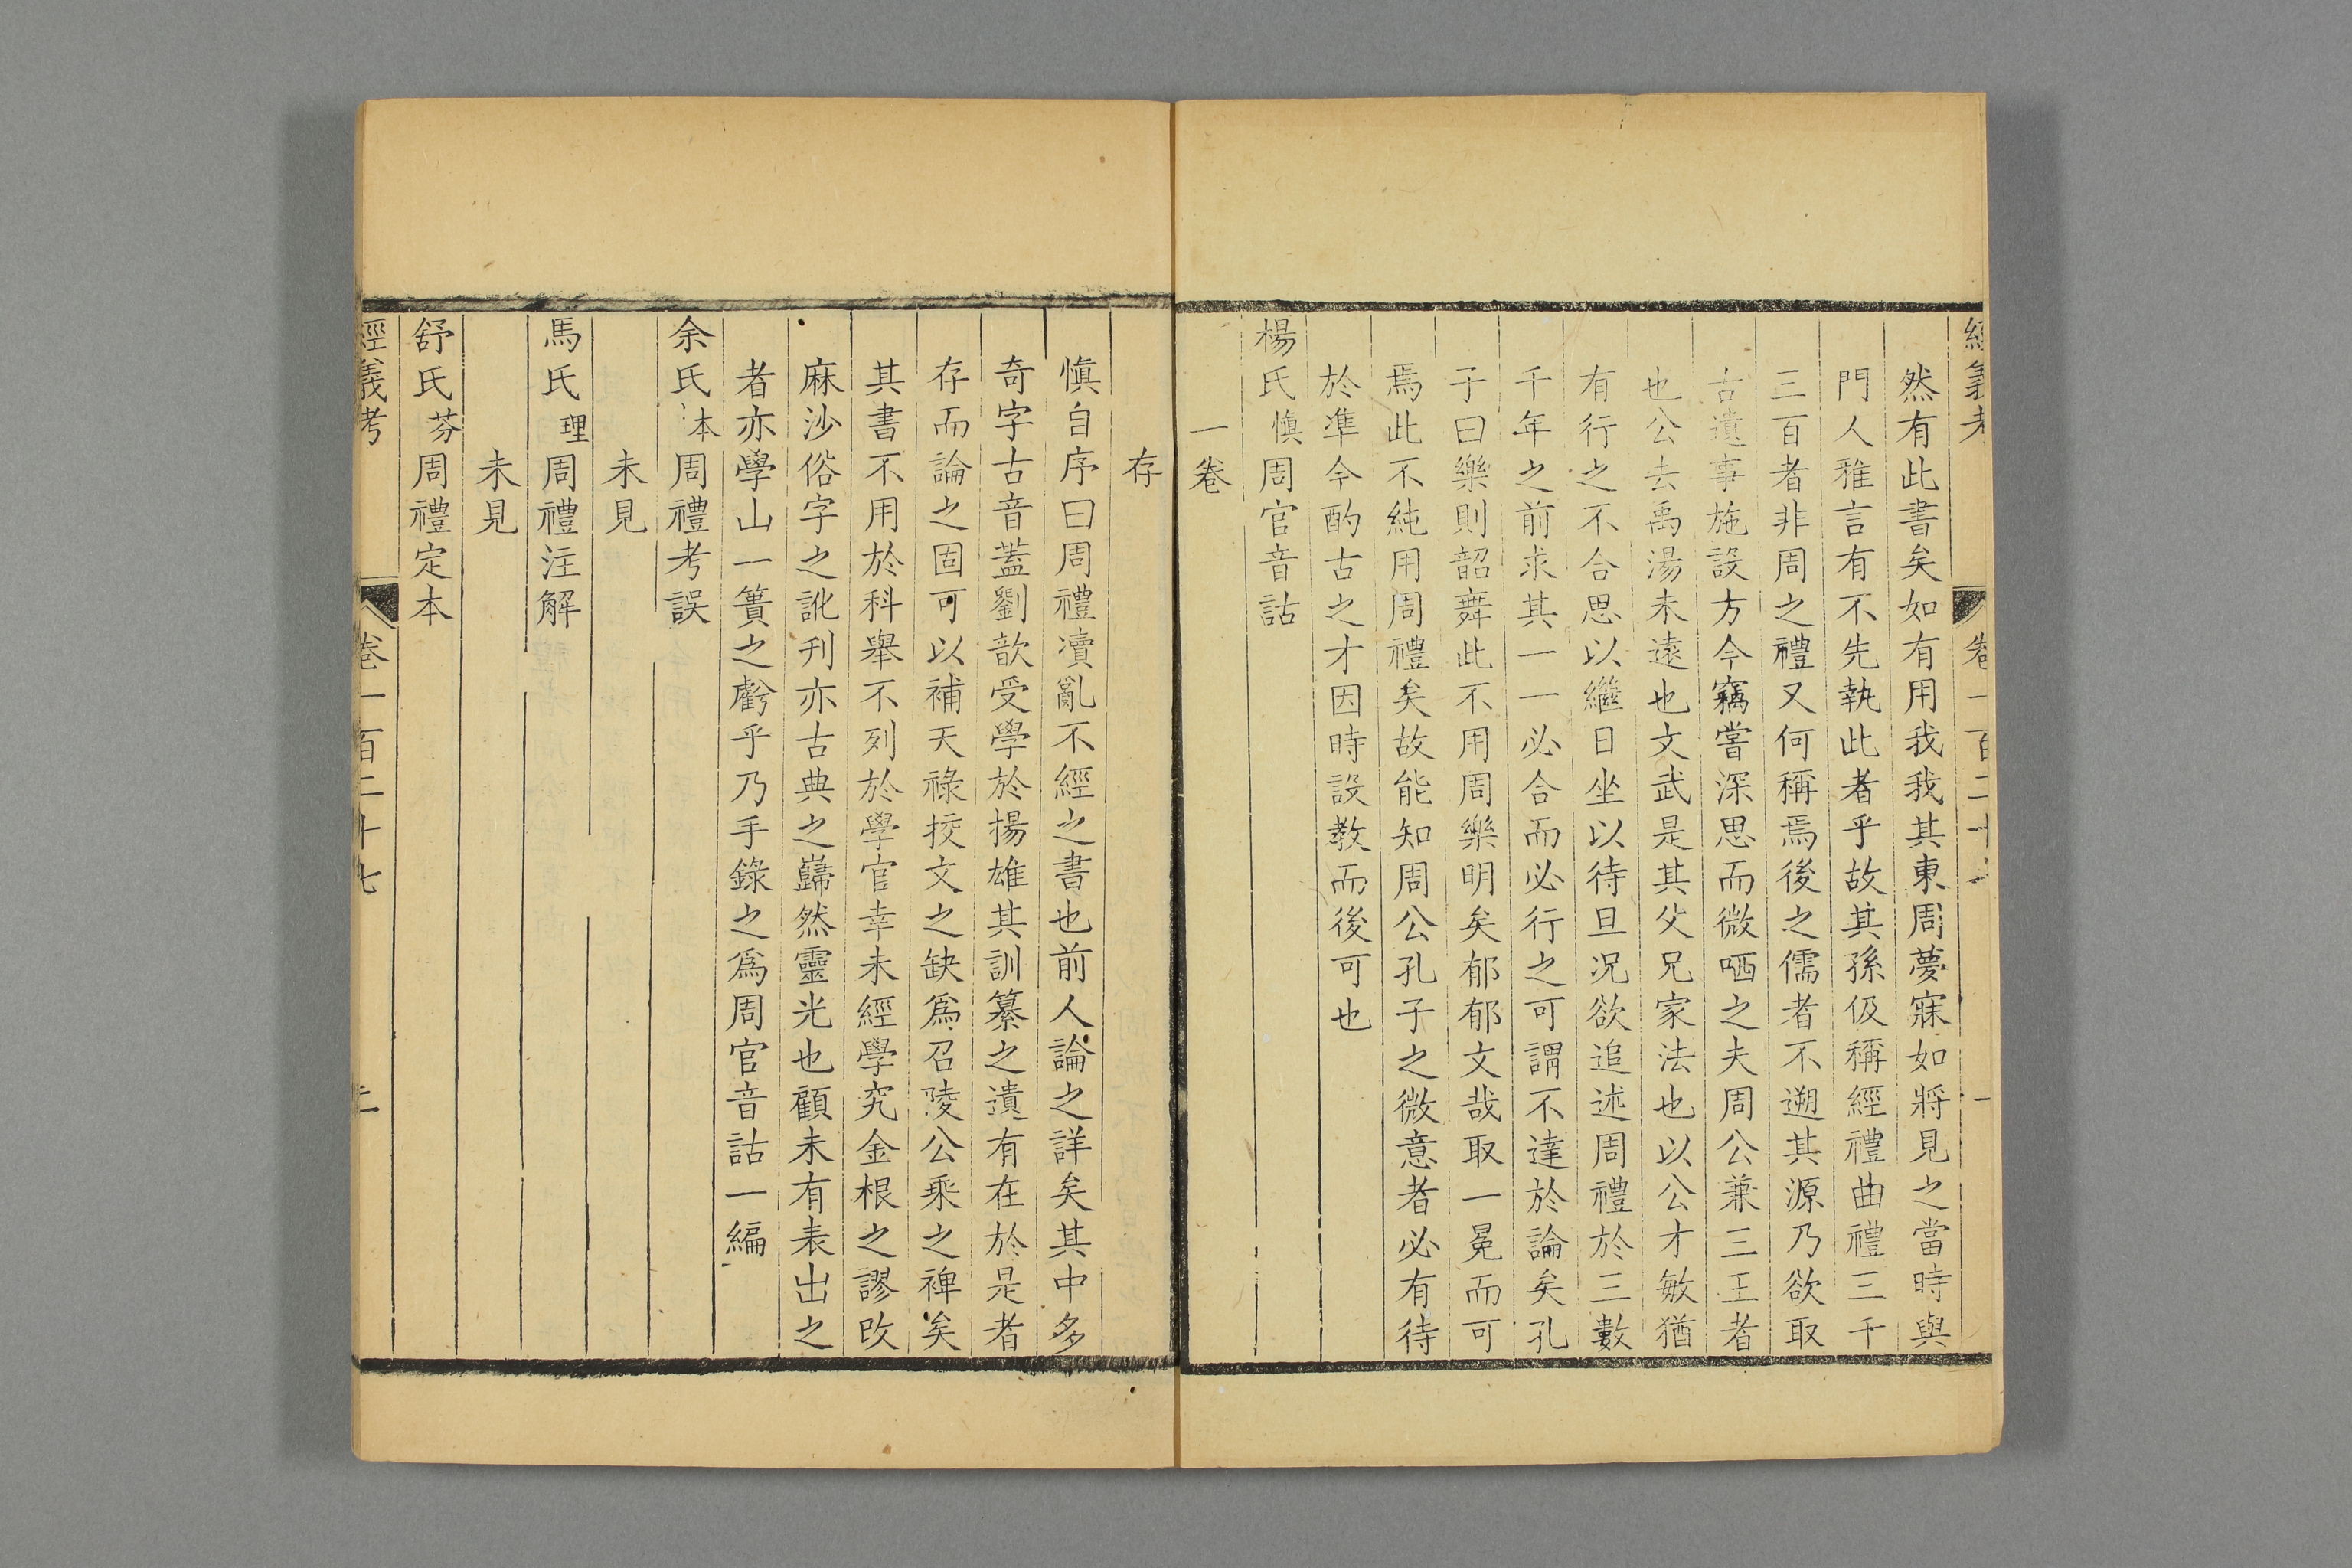 經義考 卷一百二十 一
然有此書矣如有用我我其東周夢寐如將見之當時與
門人雅言有不先執此者乎故其孫伋稱經禮曲禮三千
三百者非周之禮又何稱焉後之儒者不遡其源乃欲取
古遺事施設方今竊嘗深思而微哂之夫周公兼三王者
也公去禹湯未遠也文武是其父兄家法也以公才敏猶
有行之不合思以繼日坐以待旦况欲追述周禮於三數
千年之前求其一一必合而必行之可謂不達於論矣孔
子曰樂則韶舞此不用周樂明矣郁郁文哉取一冕而可
焉此不純用周禮矣故能知周公孔子之微意者必有待
於準今酌古之才因時設教而後可也
楊氏慎周官音詁
一卷
存
慎自序曰周禮凟亂不經之書也前人論之詳矣其中多
奇字古音蓋劉歆受學於揚雄其訓纂之遺有在於是者
存而論之固可以補天祿挍文之缺爲召陵公乘之裨矣
其書不用於科舉不列於學官幸未經學究金根之謬改
麻沙俗字之訛刊亦古典之巋然靈光也顧未有表出之
者亦學山一簣之虧乎乃手錄之爲周官音詁一編
余氏本周禮考誤
未見
馬氏理周禮注解
未見
舒氏芬周禮定本
經義考 卷一百二十七 二